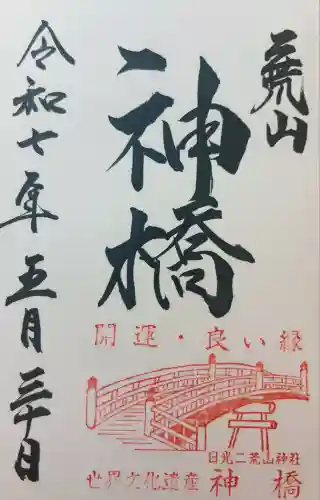 二荒山
神橋
令和七年五月三十日
開運・良い縁
日光二荒山神社
世界文化遺産 神橋